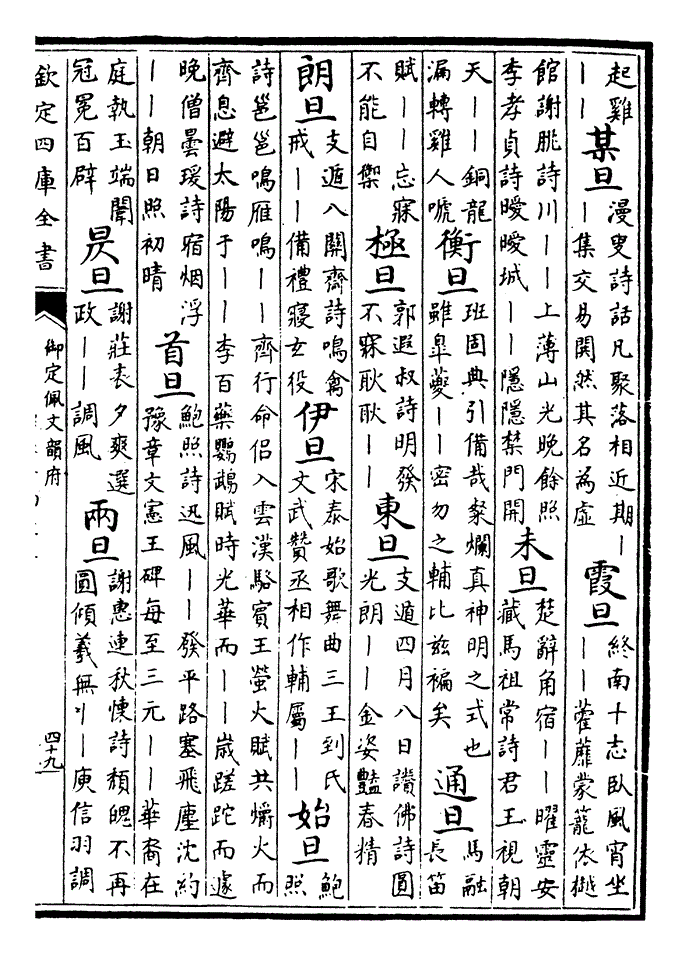 起雞
〡〡
某旦
漫叟詩話凡聚落相近期〡
〡集交易閧然其名為虛
霞旦
終南十志臥風宵坐
〡〡藿蘼蒙籠依樾
館謝朓詩川〡〡上薄山光晚餘照
李孝貞詩曖曖城〡〡隱隱禁門開
未旦
楚辭角宿〡〡曜靈安
藏馬祖常詩君王視朝
天〡〡銅龍
漏轉雞人唬
衡旦
班固典引備哉粲爛真神明之式也
雖臯夔〡〡密勿之輔比兹褊矣
通旦
馬融
長笛
賦〡〡忘寐
不能自禦
極旦
郭遐叔詩明發
不寐耿耿〡〡
東旦
支遁四月八日讚佛詩圓
光朗〡〡金姿豔春精
朗旦
支遁八關齊詩鳴禽
戒〡〡備禮寢玄役
伊旦
宋泰始歌舞曲三王到氏
文武贊丞相作輔屬〡〡
始旦
鮑
照
詩邕邕鳴雁鳴〡〡齊行命侶入雲漢駱賓王螢火賦共爝火而
齊息避太陽于〡〡李百藥鸚鵡賦時光華而〡〡嵗蹉跎而遽
晚僧曇瑗詩宿烟浮
〡〡朝日照初晴
首旦
鮑照詩迅風〡〡發平路塞飛塵沈約
豫章文憲王碑每至三元〡〡華裔在
庭執玉端闈
冠冕百辟
昃旦
謝莊表夕爽選
政〡〡調風
兩旦
謝惠連秋懐詩頽魄不再
圓傾羲無〡〡庾信羽調
欽定四庫全書
御定佩文韻府
四十九